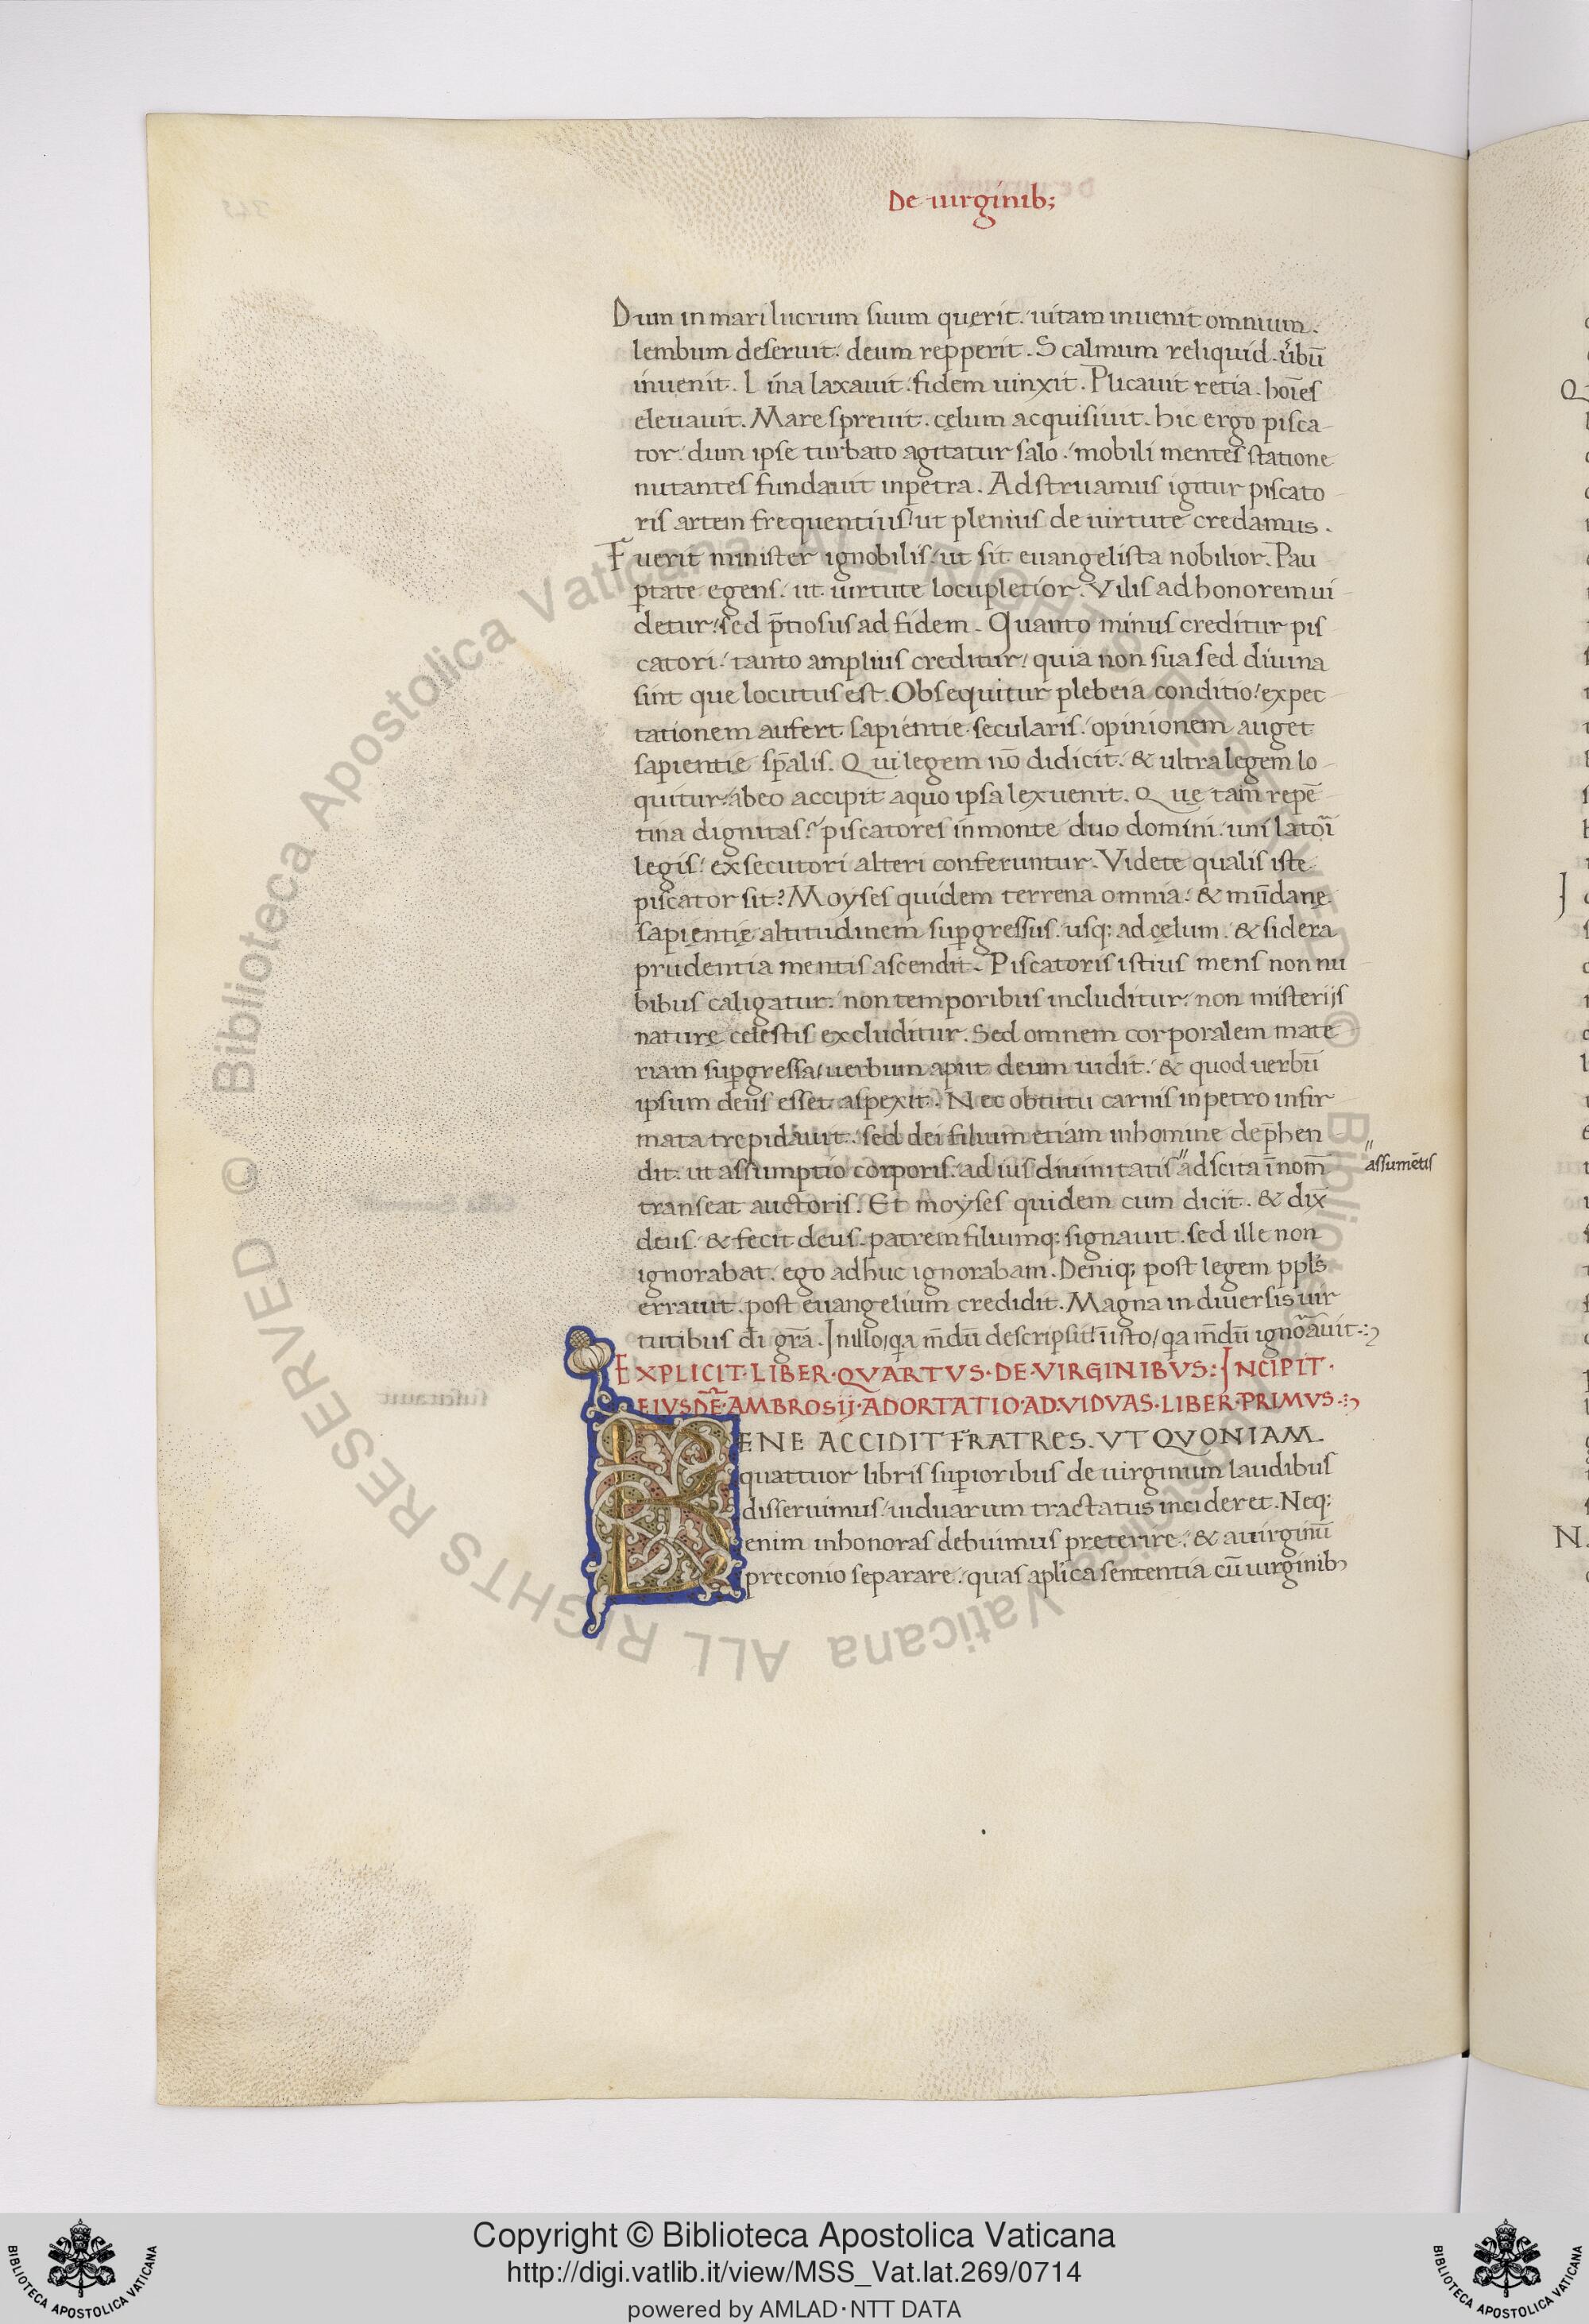 De uirginib;
Dum in mari lucrum suum quęrit. uitam inuenit omnium.
lembum deseruit. deum repperit. Scalmum reliquid. ũbũ
inuenit. Lina laxauit. fidem uinxit. Plicauit retia. hoīes
eleuauit. Mare spreuit. cęlum acquisiuit. hic ergo pisca-
tor. dum ipse turbato agitatur salo. mobili mentes statione
nutantes fundauit inpetra. Adstruamus igitur piscato
ris artem frequentius! ut plenius de uirtute credamus.
Fuerit minister ignobilis. ut sit euangelista nobilior. Pau
ptate egens. ut uirtute locupletior. Vilis ad honorem ui
detur! sed p̄tiosus ad fidem. Quanto minus creditur pis
catori. tanto amplius creditur! quia non sua sed diuina
sint que locutus est. Obsequitur plebeia conditio! expec
tationem aufert sapientie secularis. opinionem auget
sapientie sp̄alis. Qui legem nō didicit. & ultra legem lo-
quitur. abeo accipit aquo ipsa lex uenit. Quę tam repē
tina dignitas? piscatores in monte duo domini. uni latōi
legis! exsecutori alteri conferuntur. Videte qualis iste
piscator sit? Moyses quidem terrena omnia. & mūdanę
sapientię altitudinem supgressus. usq: ad cęlum. & sidera
prudentia mentis ascendit. Piscatoris istius mens non nu
bibus caligatur. non temporibus includitur. non misterijs
naturę celestis excluditur. Sed omnem corporalem mate
riam supgressa/ uerbum aput deum uidit. & quod uerbū
ipsum deus esset aspexit. Nec obtutu carnis inpetro infir
mata trepidauit. sed dei filium etiam inhomine dep̄hen
dit. ut assumptio corporis. ad ius diuinitatis " adscita ī nom̄
" assumētis
transeat auctoris. Et moyses quidem cum dicit. & dix̄
deus. & fecit deus. patrem filiumq: signauit. sed ille non
ignorabat. ego adhuc ignorabam. Deniq; post legem ppl's
errauit. post euangelium credidit. Magna in diuersis uir
tutibus d̄i gr̄a. In illo/ q̨a m̄dū descripsit! ū isto/ q̨a m̄dū ignōauit.:⁊
EXPLICIT·LIBER·QVARTVS·DE·VIRGINIBVS: INCIPIT·
EIVSDĒ·AMBROSIJ·ADORTATIO·AD·VIDVAS·LIBER·PRIMVS.:⁊
BENE ACCIDIT FRATRES. VT QVONIAM
quattuor libris supioribus de uirginum laudibus
disseruimus/ uiduarum tractatus incideret. Neq:
enim inhonoras debuimus preterire. & auirginū
preconio separare. quas apl'ica sententia cū uirginib⁊
Copyright © Biblioteca Apostolica Vaticana
http://digi.vatlib.it/view/MSS_Vat.lat.269/0714
powered by AMLAD·NTT DATA
BIBLIOTECA APOSTOLICA VATICANA
BIBLIOTECA APOSTOLICA VATICANA
© Biblioteca Apostolica Vaticana ALL RIGHTS RESERVED © Biblioteca Apostolica Vaticana ALL RIGHTS RESERVED